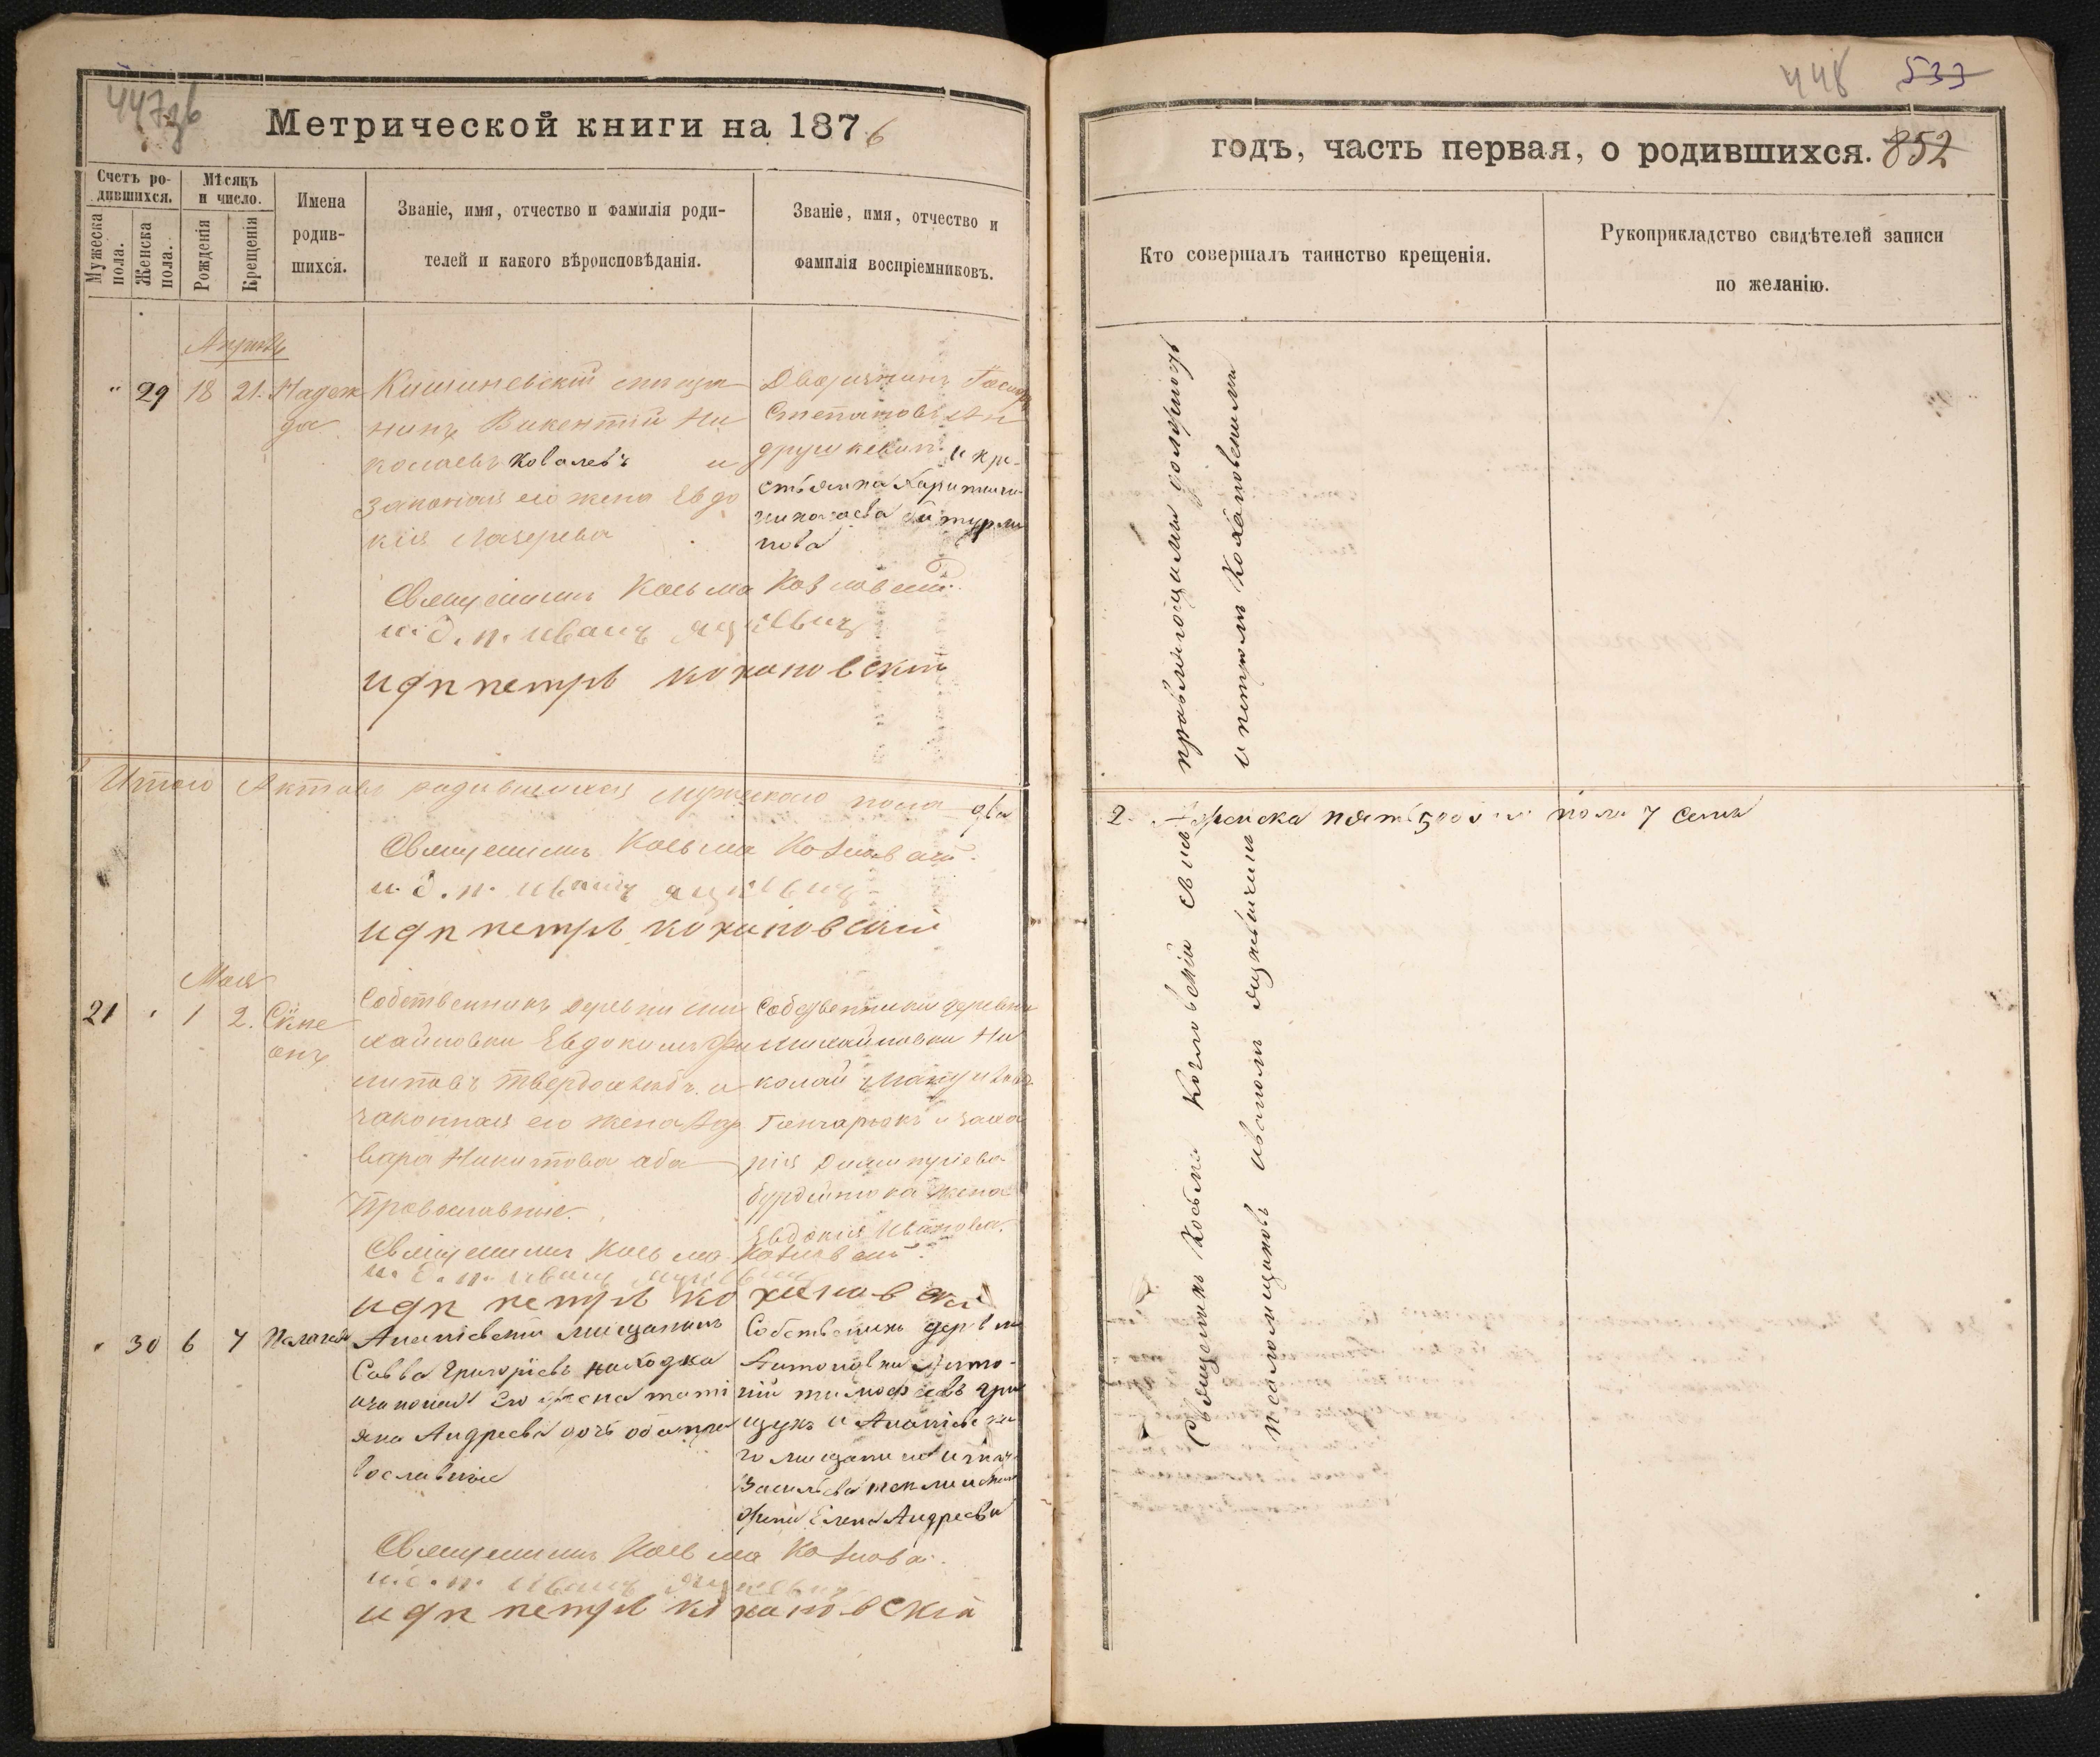 447об
Метрической книги на 1876
Счетъ ро-
дившихся.
Мѣсяцъ
и число.
Мужеска
пола.
Женска
пола.
Рожденія
Крещенія
Имена
родив-
шихся.
Званіе, имя, отчество и фамилія роди-
телей и какого вѣроисповѣданія.
Званіе, имя, отчество и
фамилія воспріемниковъ.
Апрѣль
" 29 18 21. Надеж
да
Кишиневскій
нинъ Викентій Ни
колаевъ Ковалевъ и
законная его жена Евдо
кія Лазарева
Дворянинъ
Степановъ Ан
друшкевич и кре-
стьянка
николаева
нова
Священникъ Косьма Козловскій
и. д. п. Иванъ Яцкевичъ
идп петръ кохановскій
Итого родившихся мужескаго пола два
Священникъ Косьма Козловскій
и. д. п. Иванъ Яцкевичъ
идп петръ кохановскій
Мая
21 " 1 2. Симе
онъ
Собственникъ деревни Ми
хайловки Евдокимъ Фи
липовъ Твердохлебъ и
законная его жена Вар
вара Никитова оба
Православные.
Собственники деревни
Михайловки Ни
колай
Гончарюкъ и
рія Димитріева
жена
Евдокія Иванова.
Священникъ Косьма Козловскій
и. д. п. Иванъ Яцкевичъ
идп петръ кохановскій
" 30 6 7 Пелагея
Ананіевскій мещанинъ
Савва Григоріевъ находка
и законная Его жена тати
яна Андреева дочь оба пра
вославные
Собственникъ деревни
Антоновки
тимофеевъ гри
щукъ и Ананіевска
го мещанина
Васильева
Елена Андреева
Священникъ Косьма Козловскій
и. д. п. Иванъ Яцкевичъ
идп петръ кохановскій
448 533
годъ, часть первая, о родившихся. 852
Кто совершалъ таинство крещенія.
Рукоприкладство свидѣтелей записи
по желанію.
Священникъ Косьма Козловскій съ и. правляющими должность
псаломщиковъ Иваномъ Яцкевичемъ и петромъ Кохановскимъ
2. женска пять 5 пола 7 семь